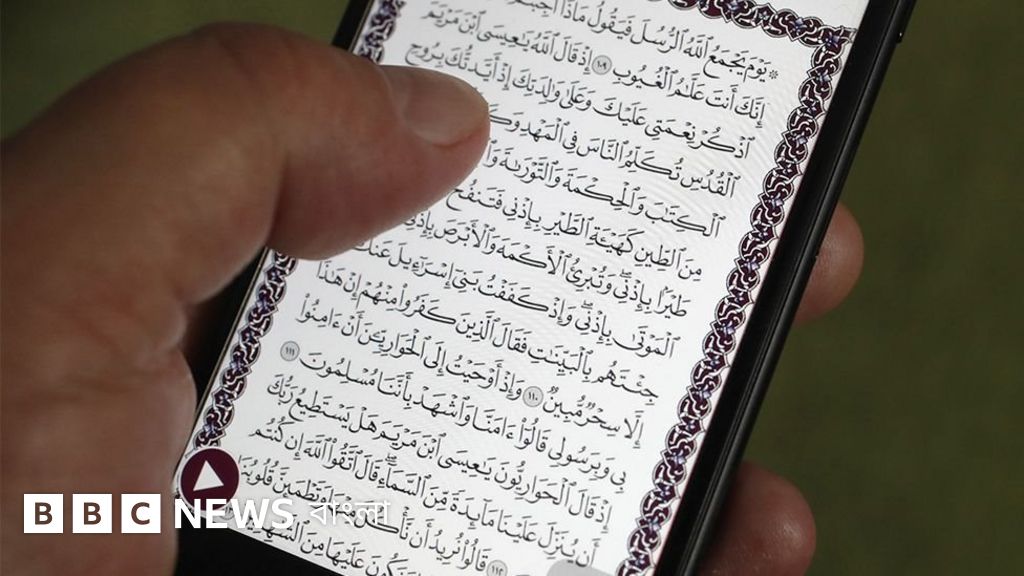 ۞ يَوْمَ يَجْمَعُ ٱللَّهُ ٱلرُّسُلَ فَيَقُولُ مَاذَآ
إِنَّكَ أَنتَ عَلَّٰمُ ٱلْغُيُوبِ ١٠٩ إِذْ قَالَ ٱللَّهُ يَٰعِيسَى ٱبْنَ مَرْيَمَ
ٱذْكُرْ نِعْمَتِى عَلَيْكَ وَعَلَىٰ وَٰلِدَتِكَ إِذْ أَيَّدتُّكَ بِرُوحِ
ٱلْقُدُسِ تُكَلِّمُ ٱلنَّاسَ فِى ٱلْمَهْدِ
ٱلْكِتَٰبَ وَٱلْحِكْمَةَ وَٱلتَّوْرَىٰةَ
مِنَ ٱلطِّينِ كَهَيْـَٔةِ ٱلطَّيْرِ بِإِذْنِى فَتَنفُخُ
طَيْرًۢا بِإِذْنِى وَتُبْرِئُ ٱلْأَكْمَهَ وَٱلْأَبْرَصَ بِإِذْنِى
ٱلْمَوْتَىٰ بِإِذْنِى وَإِذْ كَفَفْتُ بَنِىٓ إِسْرَٰٓءِيلَ عَنكَ
جِئْتَهُم بِٱلْبَيِّنَٰتِ فَقَالَ ٱلَّذِينَ كَفَرُوا۟ مِنْهُمْ إِنْ هَٰذَآ
إِلَّا سِحْرٌ مُّبِينٌ ١١٠ وَإِذْ أَوْحَيْتُ إِلَى ٱلْحَوَارِيِّـۧنَ أَنْ ءَامِنُوا۟
بِى وَبِرَسُولِى قَالُوٓا۟ ءَامَنَّا وَٱشْهَدْ بِأَنَّنَا مُسْلِمُونَ ١١١
إِذْ قَالَ ٱلْحَوَارِيُّونَ يَٰعِيسَى ٱبْنَ مَرْيَمَ هَلْ يَسْتَطِيعُ رَبُّكَ
أَن يُنَزِّلَ عَلَيْنَا مَآئِدَةً مِّنَ ٱلسَّمَآءِ قَالَ ٱتَّقُوا۟ ٱللَّهَ إِن كُنتُم
١١٢ قَالُوا۟ نُرِيدُ أَن نَّأْكُلَ وَتَطْمَئِنَّ قُلُوبُنَا
عَلَيْهَا مِنَ
BBC NEWS বাংলা